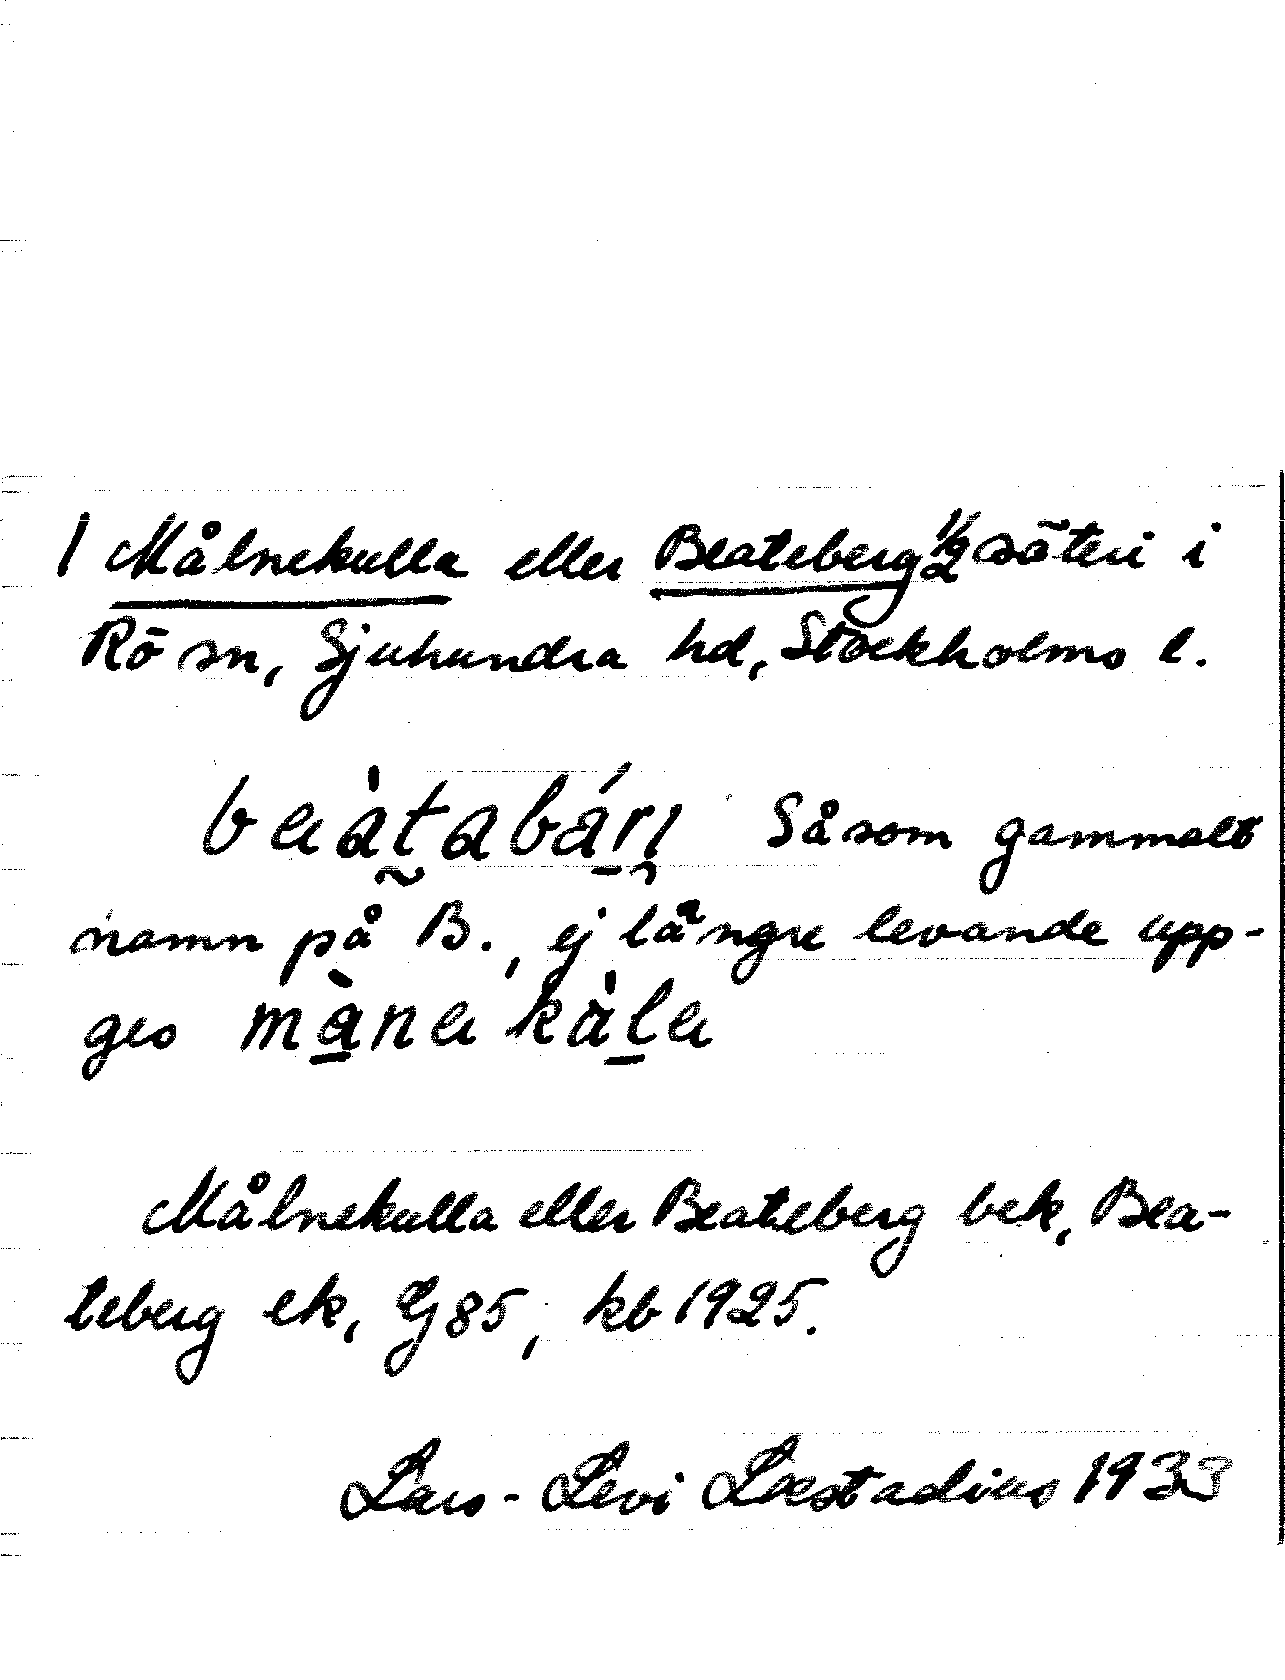 1 Målnekulla eller Beateberg 1/2 säteri i
Rö sn, Sjuhundra hd, Stockholms l.
beàtabári Såsom gammalt
namn på B., ej längre levande upp-
ges mànakàla
Målnekulla eller Beateberg bek, Bea-
teberg ek, Gj 85, kb 1925.
Lars-Levi Læstadius 1933